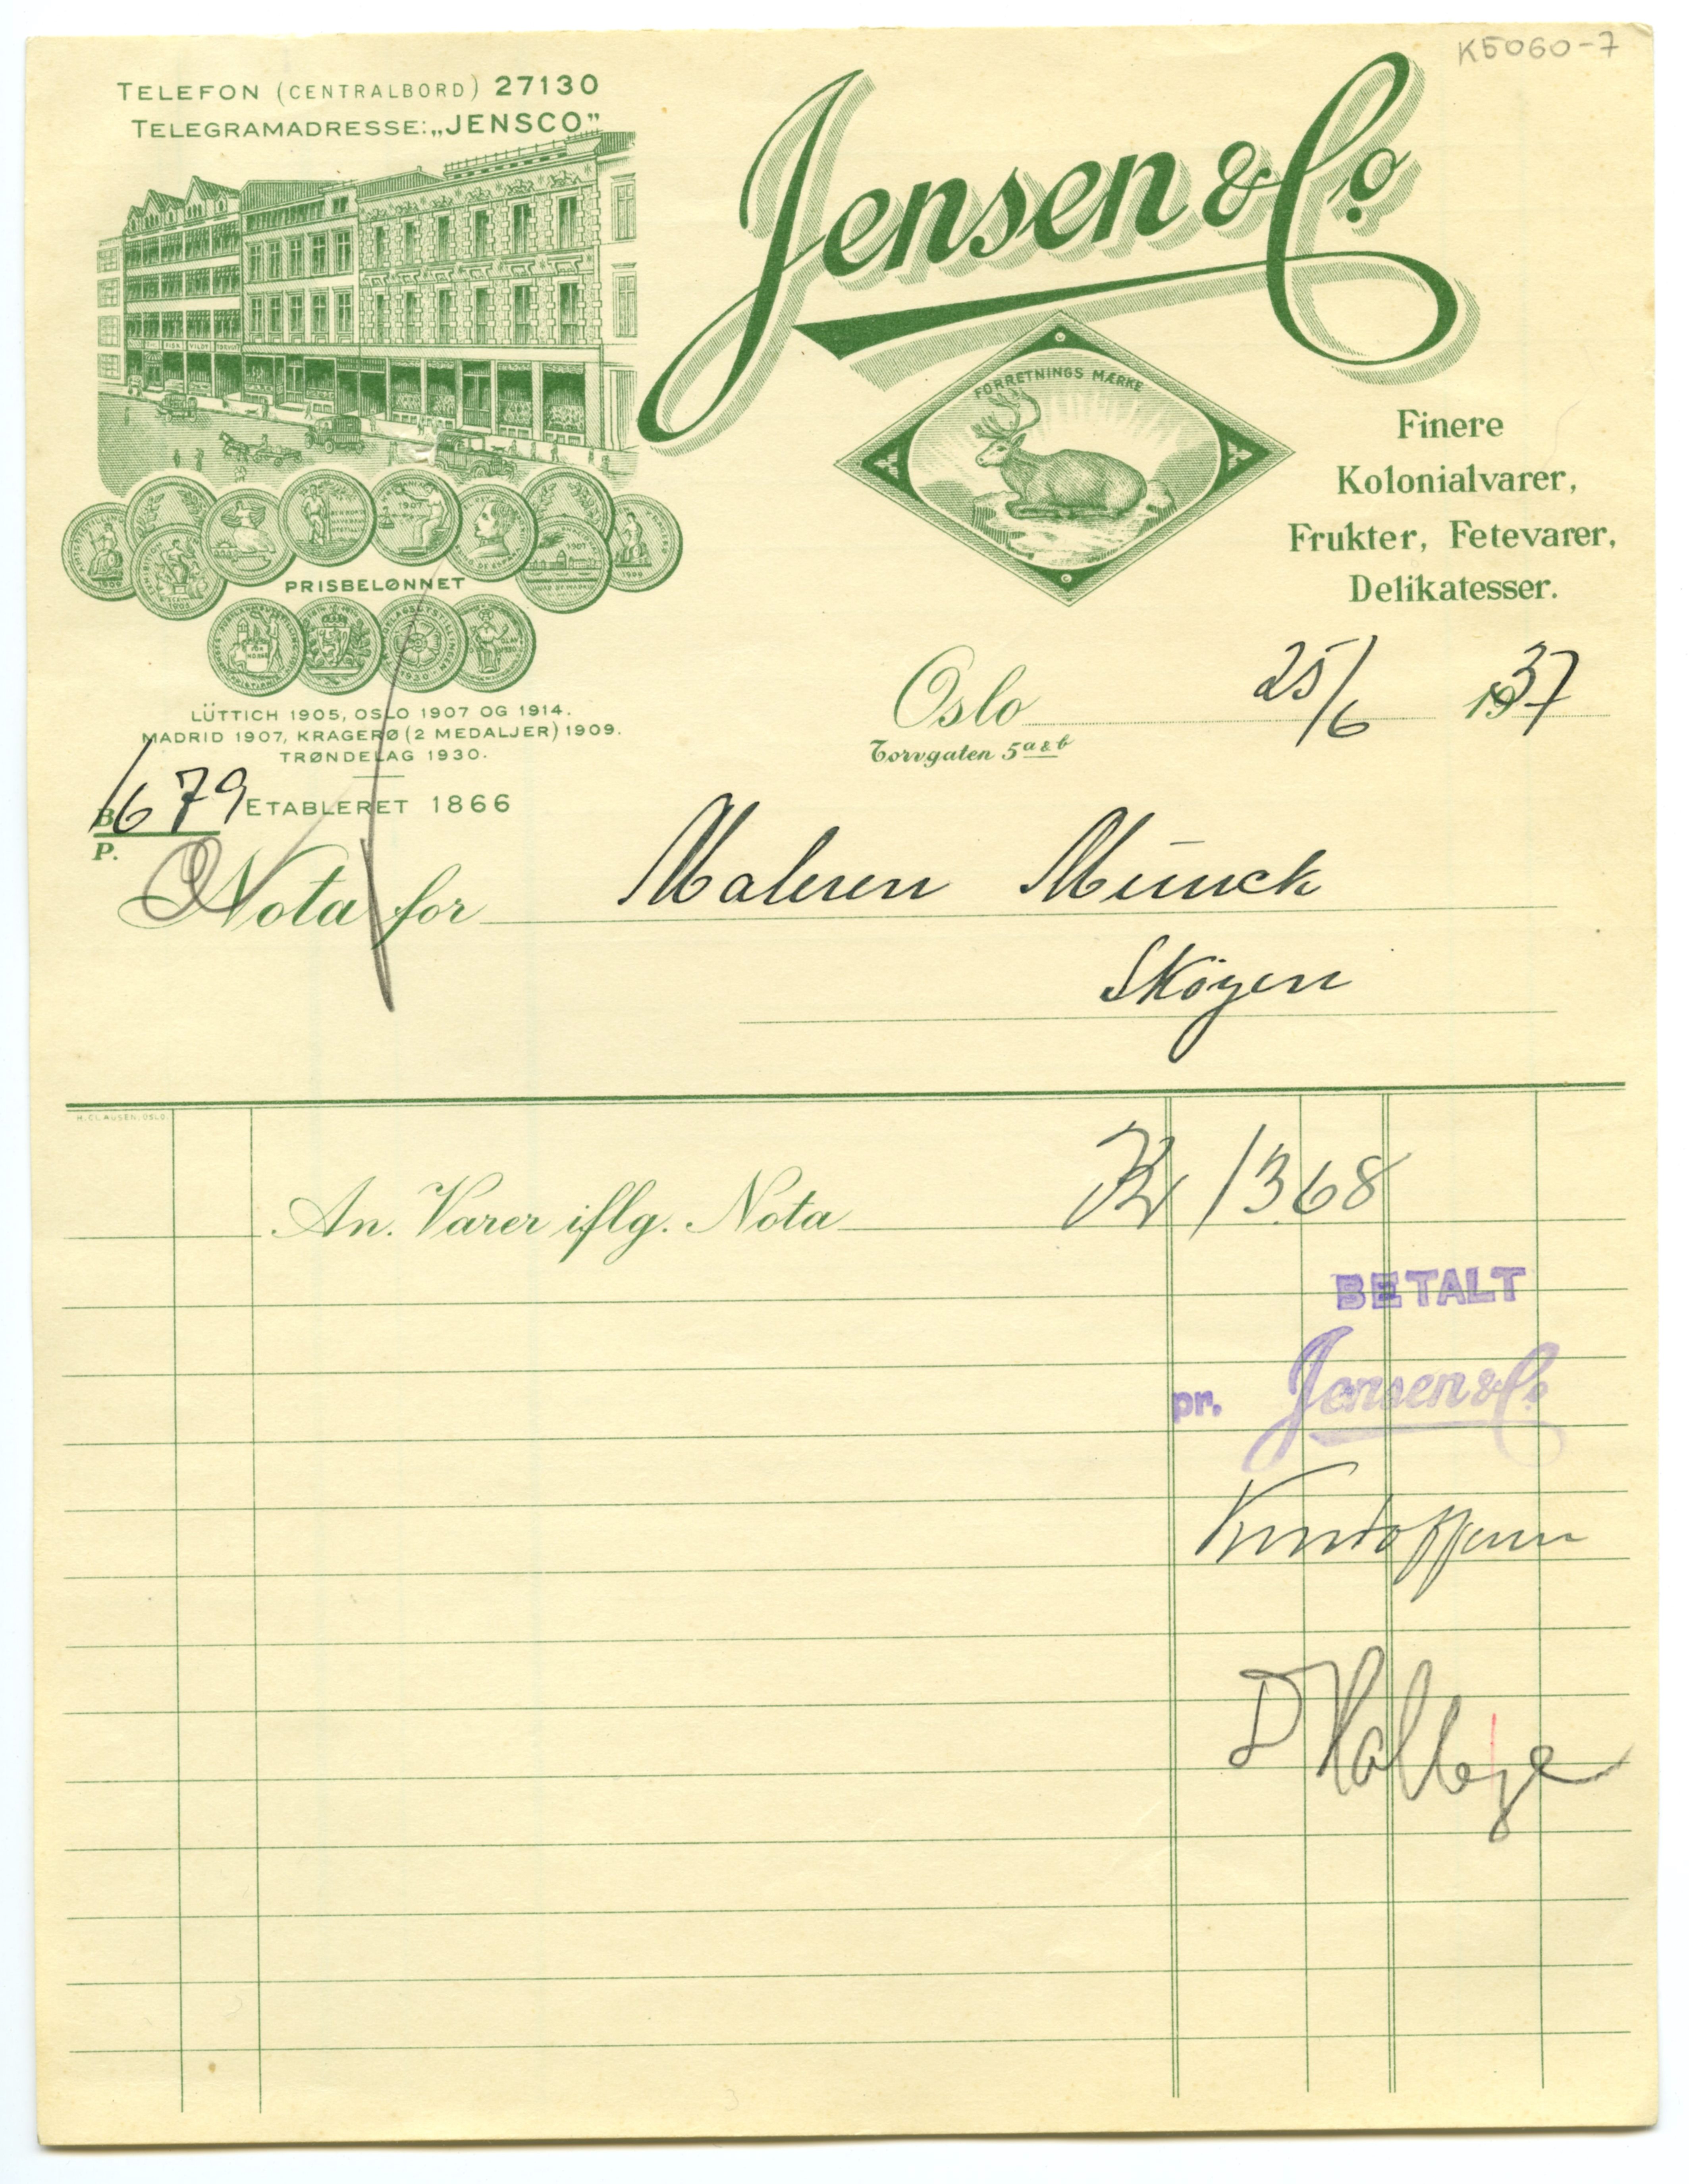 K5060-7
TELEFON (CENTRALBORD) 27130
TELEGRAMADRESSE: „JENSCO”
Jensen & Co
FORRETNINGS MÆRKE
Finere
Kolonialvarer,
Frukter, Fetevarer,
Delikatesser.
PRISBELØNNET
LÜTTICH 1905, OSLO 1907 OG 1914.
MADRID 1907, KRAGERØ (2 MEDALJER) 1909.
TRØNDELAG 1930.
ETABLERET 1866
Oslo 25/6 1937
Torvgaten 5 a & b
B. 1679
P.
Nota for Maleren Munck
Sköyen
H. CLAUSEN, OSLO.
An. Varer iflg. Nota Kr 13.68
BETALT
pr. Jensen & Co